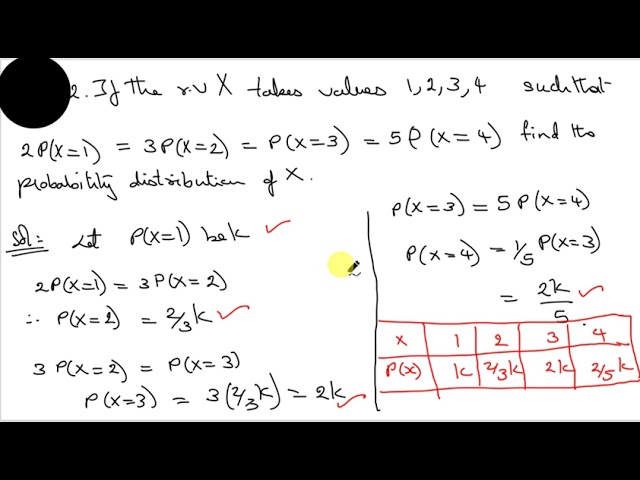 2. If the r.v X takes values 1, 2, 3, 4 such that
2P(X=1) = 3P(X=2) = P(X=3) = 5P(X=4) find the
probability distribution of X.
Sol:- Let P(X=1) be k
2P(X=1) = 3P(X=2)
∴ P(X=2) = 2/3 k
3P(X=2) = P(X=3)
P(X=3) = 3(2/3 k) = 2k
P(X=3) = 5P(X=4)
P(X=4) = 1/5 P(X=3)
= 2k/5
X 1 2 3 4
P(X) k 2/3k 2k 2/5k